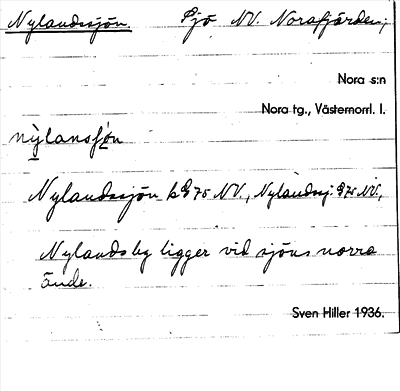 Nylandssjön. Sjö NV. Norafjärden;
Nora s:n
Nora tg., Västernorrl. l.
nỳlansjọ̀n
Nylandssjön k G 75 NV., Nylandsj. G 75 NV,
Nylandsby ligger vid sjöns norra
ände.
Sven Hiller 1936.